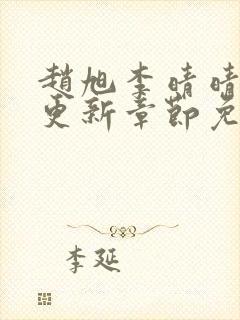 趙旭李晴晴
更新章節免
李延